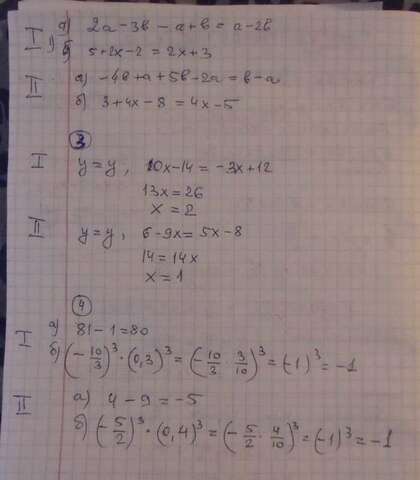 I 1) а) 2a-3b-a+b=a-2b
б) 5+2x-2=2x+3
II а) -4b+a+5b-2a=b-a
б) 3+4x-8=4x-5
3
I y=y, 10x-14=-3x+12
13x=26
x=2
II y=y, 6-9x=5x-8
14=14x
x=1
4
I а) 81-1=80
б) (-10/3)³·(0,3)³=(-10/3·3/10)³=(-1)³=-1
II а) 4-9=-5
б) (-5/2)³·(0,4)³=(-5/2·4/10)³=(-1)³=-1